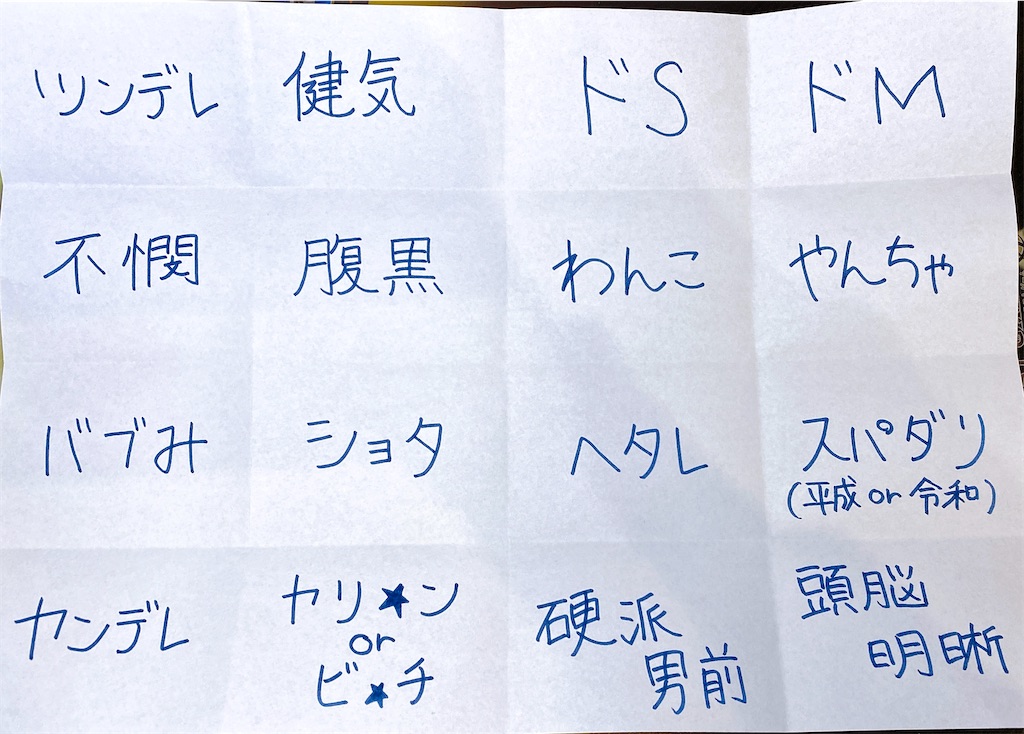 ツンデレ 健気 ドS ドM
不憫 腹黒 わんこ やんちゃ
バブみ ショタ ヘタレ スパダリ
(平成or令和)
ヤンデレ ヤリ★ン
or
ビ★チ
硬派
男前
頭脳
明晰